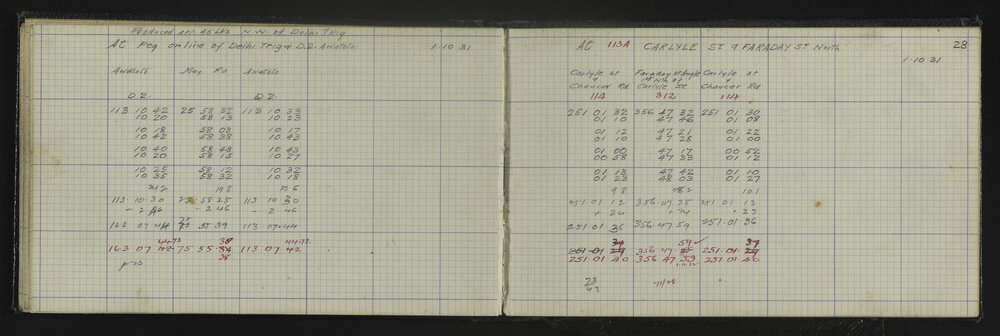 Produced 45 LKS N.W. of Delhi Trig
At Peg on line of Delhi Trig & D.2. Awatoto 1.10.31
Awatoto May Rd Awatoto
D2. D2.
113 10 42 25 58 32 113 10 33
10 20 58 13 10 23
10 18 58 08 10 17
10 42 58 38 10 43
10 40 58 48 10 43
10 20 58 15 10 27
10 25 58 12 10 32
10 35 58 32 10 18
242 198 236
113 10 30 58 25 113 10 30
- 2 46 - 2 46 - 2 46
163 07 44 55 39 113 07 44
44.72 44.72
163 07 42 75 55 113 07 42
38
At 113A CARLYLE ST & FARADAY ST North 28
1.10.31
Carlyle st Faraday St Angle Carlyle st
& 1st Nth of &
Chaucer Rd Carlyle St Chaucer Rd
114 312 114
251 01 32 356 47 32 251 01 30
01 10 47 46 01 08
01 12 47 21 01 22
01 10 47 28 01 00
01 00 47 17 00 52
00 58 47 33 01 12
01 13 47 42 01 10
01 23 48 03 01 27
98 282 101
251 01 12 356 47 35 251 01 13
+ 24 + 24 + 23
251 01 36 356 47 59 251 01 36
59 ✓
251 01 356 47 251 01
251 01 40 356 47 59 251 01 40
23
43